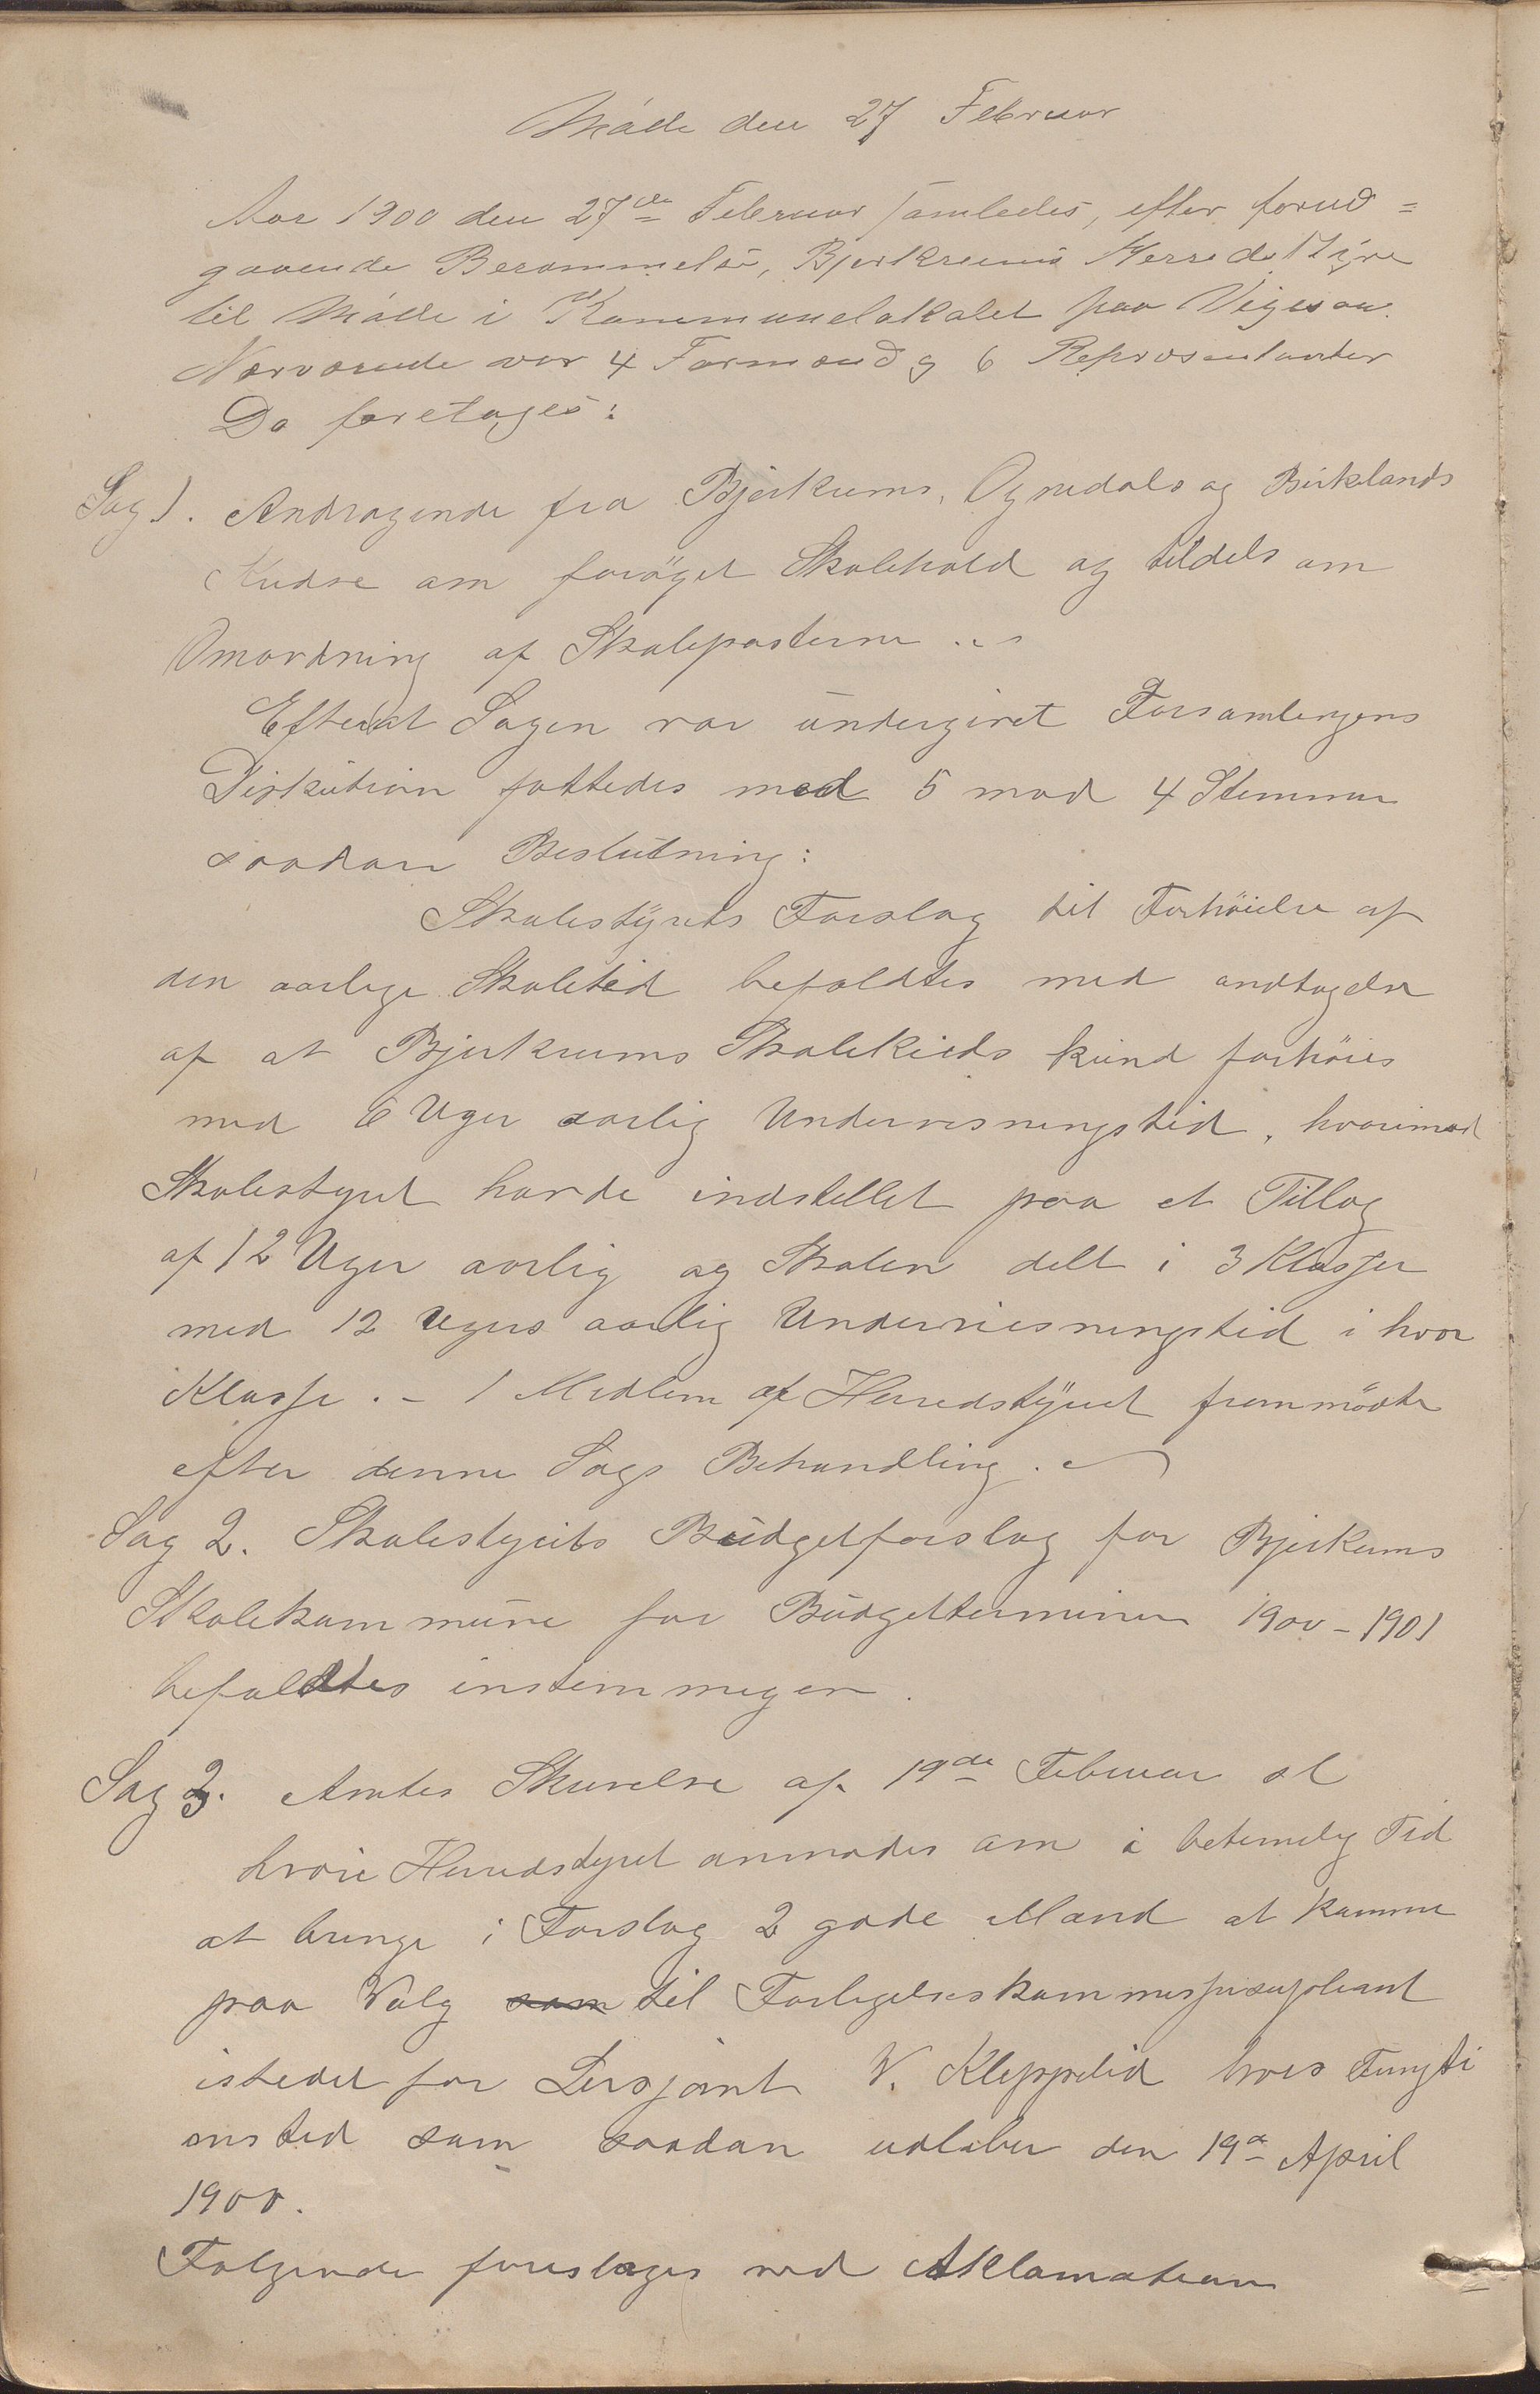 Møde den 27 Februar
Aar 1900 den 27de Februar samledes, efter forud=
gaaende Berammelse, Bjerkreims Herredsstyre
til Møde i Kommunelokalet paa Vigesaa.
Nærværende var 4 Formænd og 6 Repræsentanter
Da foretages:
Sag 1. Andragende fra Bjerkrems, Ognedals og Birklands
Kredse om forøget Skolehold og tildels om
Omordning af Skoleposterne
Efterat Sagen var undergivet Forsamlingens
Diskution fattedes med 5 mod 4 Stemmer
saadan Beslutning:
Skolestyrets Forslag til Forhøielse af
den aarlige Skoletid befaldtes med undtagelse
af at Bjerkreims Skolekreds kund forhøies
med 6 Uger aarlig Undervisningstid, hvorimod
Skolestyret havde indstillet paa et Tillæg
af 12 Uger aarlig og Skolen delt i 3 Klasser
med 12 Ugers aarlig Underviesningstid i hver
Klasse. - 1 Medlem af Herredstyret fremmødte
efter denne Sags Behandling.
Sag 2. Skolestyrets Budgetforslag for Bjerkrems
Skolekommune for Budgetterminen 1900-1901
befaldtes enstemmigen.
Sag 3. Amtes Skrivelse af 19de Februar sl
hvori Herredstyret anmodes om i betimelig Tid
at bringe i Forslag 2 gode Mænd at komme
paa Valg som til Forligelseskommisjrisuppleant
istedet for Sersjant V. Kleppelid hvis Fungti
onstid som saadan udløber den 19de April
1900.
Følgende foreslages ved Aklamation